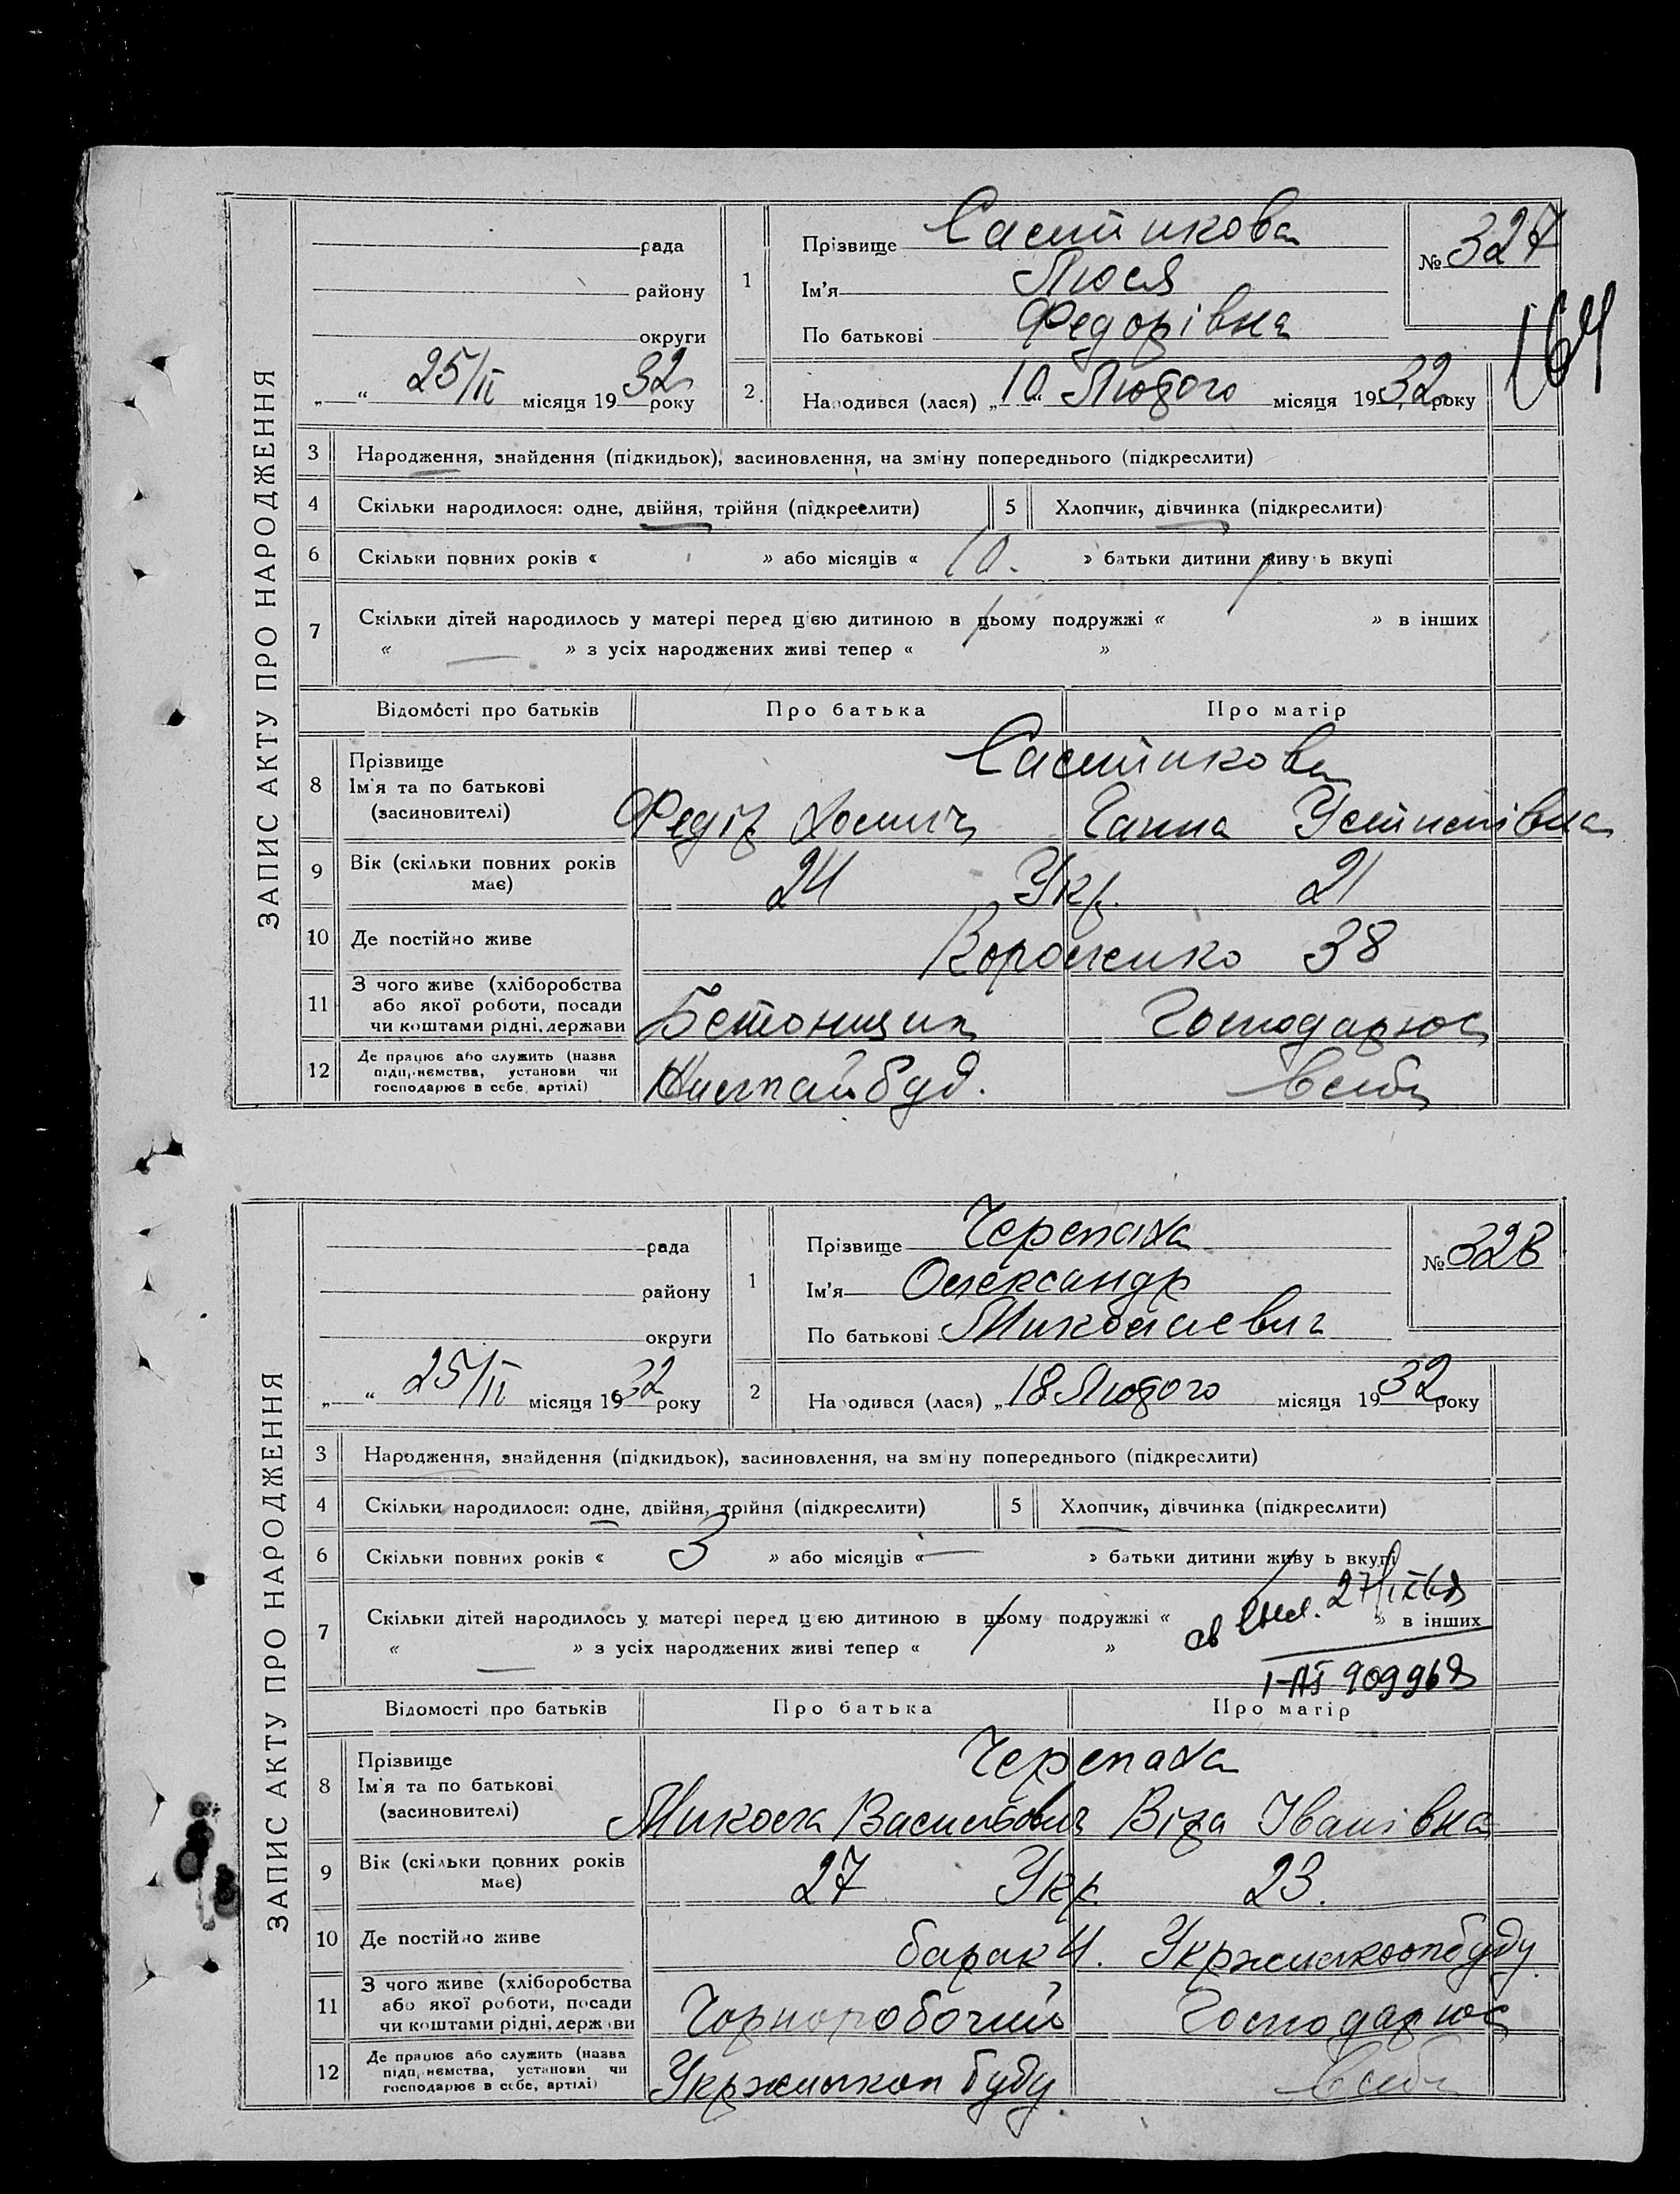 ЗАПИС АКТУ ПРО НАРОДЖЕННЯ
рада
району
округи
„ “ 25/II місяця 1932 року
1 Прізвище
Ім'я Люся
По батькові Федорівна
№ 327
164
2 Народився (лася) „10“ Лютого місяця 1932 року
3 Народження, знайдення (підкидьок), засиновлення, на зміну попереднього (підкреслити)
4 Скільки народилося: одне, двійня, трійня (підкреслити) 5 Хлопчик, дівчинка (підкреслити)
6 Скільки повних років « » або місяців « 10. » батьки дитини живуть вкупі
7 Скільки дітей народилось у матері перед цією дитиною в цьому подружжі « » в інших
« — » з усіх народжених живі тепер « »
Відомості про батьків Про батька Про матір
8 Прізвище
Ім'я та по батькові
(засиновителі)
Федір Хомич Ганна
9 Вік (скільки повних років
має) 24 Укр. 21
10 Де постійно живе 38
11 З чого живе (хліборобства
або якої роботи, посади
чи коштами рідні, держави
Бетонщик Господарює
12 Де працює або служить (назва
підприємства, установи чи
господарює в себе, артілі)
в себе
ЗАПИС АКТУ ПРО НАРОДЖЕННЯ
рада
району
округи
„ “ 25/II місяця 1932 року
1 Прізвище Черепаха
Ім'я Олександр
По батькові Миколаєвич
№ 328
2 Народився (лася) „18 Лютого місяця 1932 року
3 Народження, знайдення (підкидьок), засиновлення, на зміну попереднього (підкреслити)
4 Скільки народилося: одне, двійня, трійня (підкреслити) 5 Хлопчик, дівчинка (підкреслити)
6 Скільки повних років « 3 » або місяців « — » батьки дитини живуть вкупі
7 Скільки дітей народилось у матері перед цією дитиною в цьому подружжі « » в інших
« — » з усіх народжених живі тепер « »
Відомості про батьків Про батька Про матір
8 Прізвище
Ім'я та по батькові
(засиновителі)
Черепаха
Микола Васильович Віра Іванівна
9 Вік (скільки повних років
має) 27 Укр. 23.
10 Де постійно живе барак 4. Укржилкоопбуду
11 З чого живе (хліборобства
або якої роботи, посади
чи коштами рідні, держави
Чорноробочий Господарює
12 Де працює або служить (назва
підприємства, установи чи
господарює в себе, артілі)
Укржилкопбуду в себе